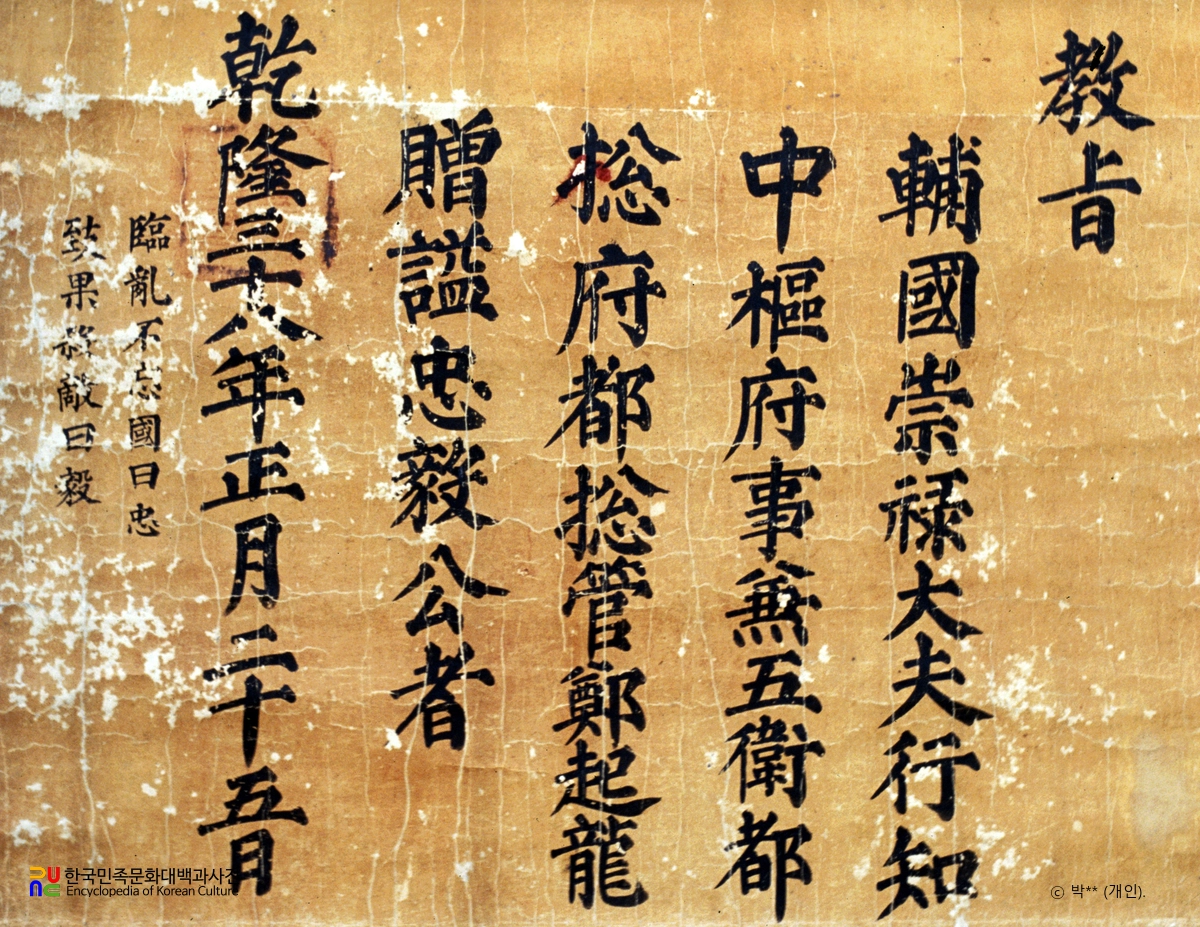 教旨
輔國崇祿大夫行知
中樞府事兼五衛都
揔府都揔管鄭起龍
贈謚忠毅公者
乾隆三十八年正月二十五日
臨亂不忘國曰忠
致果殺敵曰毅
한국민족문화대백과사전
Encyclopedia of Korean Culture
ⓒ 박** (개인).